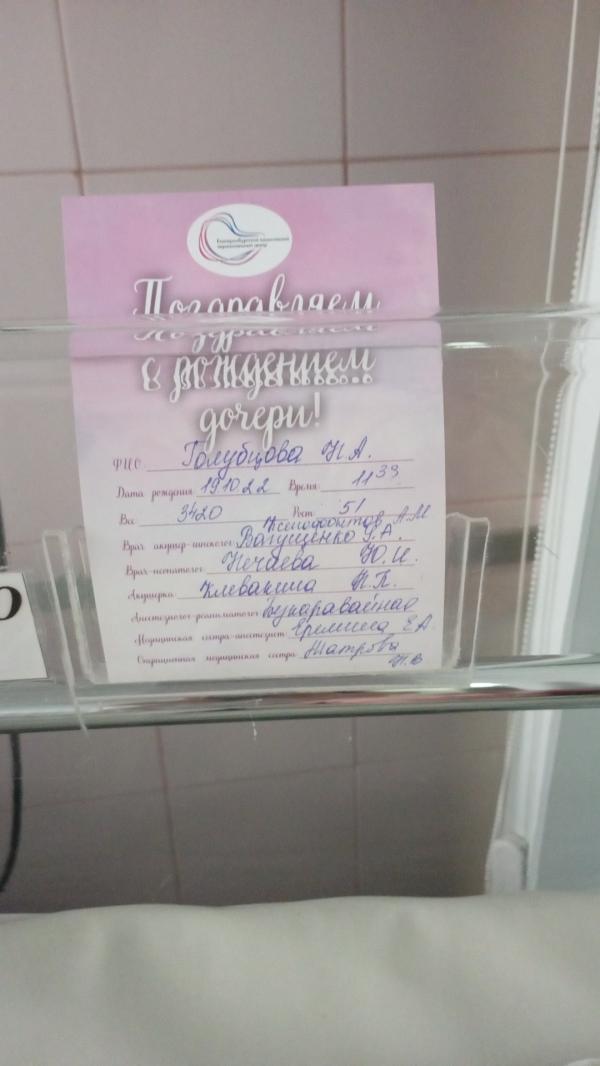 Екатеринбургский клинический
перинатальный центр
Поздравляем
с рождением
дочери!
ФИО Голубцова Н.А.
Дата рождения 191022 Время 11 33
Вес 3420 Рост 51
Ксенофонтов А.М
Врач акушер-гинеколог Вагущенко У.А.
Врач-неонатолог Нечаева Ю.И.
Акушерка Клевакина Н.П.
Анестезиолог-реаниматолог Букаравайная
Медицинская сестра-анестезист Еремина Е А.
Операционная медицинская сестра Шатрова
Т.В
О